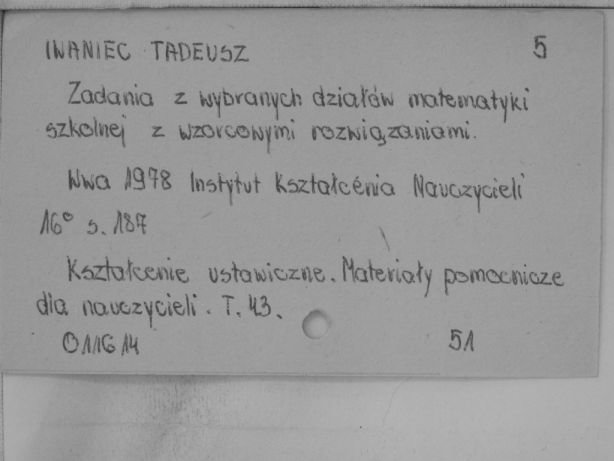 IWANIEC TADEUSZ 5
Zadania z wybranych działów matematyki
szkolnej z wzorcowymi rozwiązaniami.
Wwa 1978 Instytut Kształcénia Nauczycieli
16° s. 187
Kształcenie ustawiczne. Materiały pomocnicze
dla nauczycieli. T. 43.
O11614 51